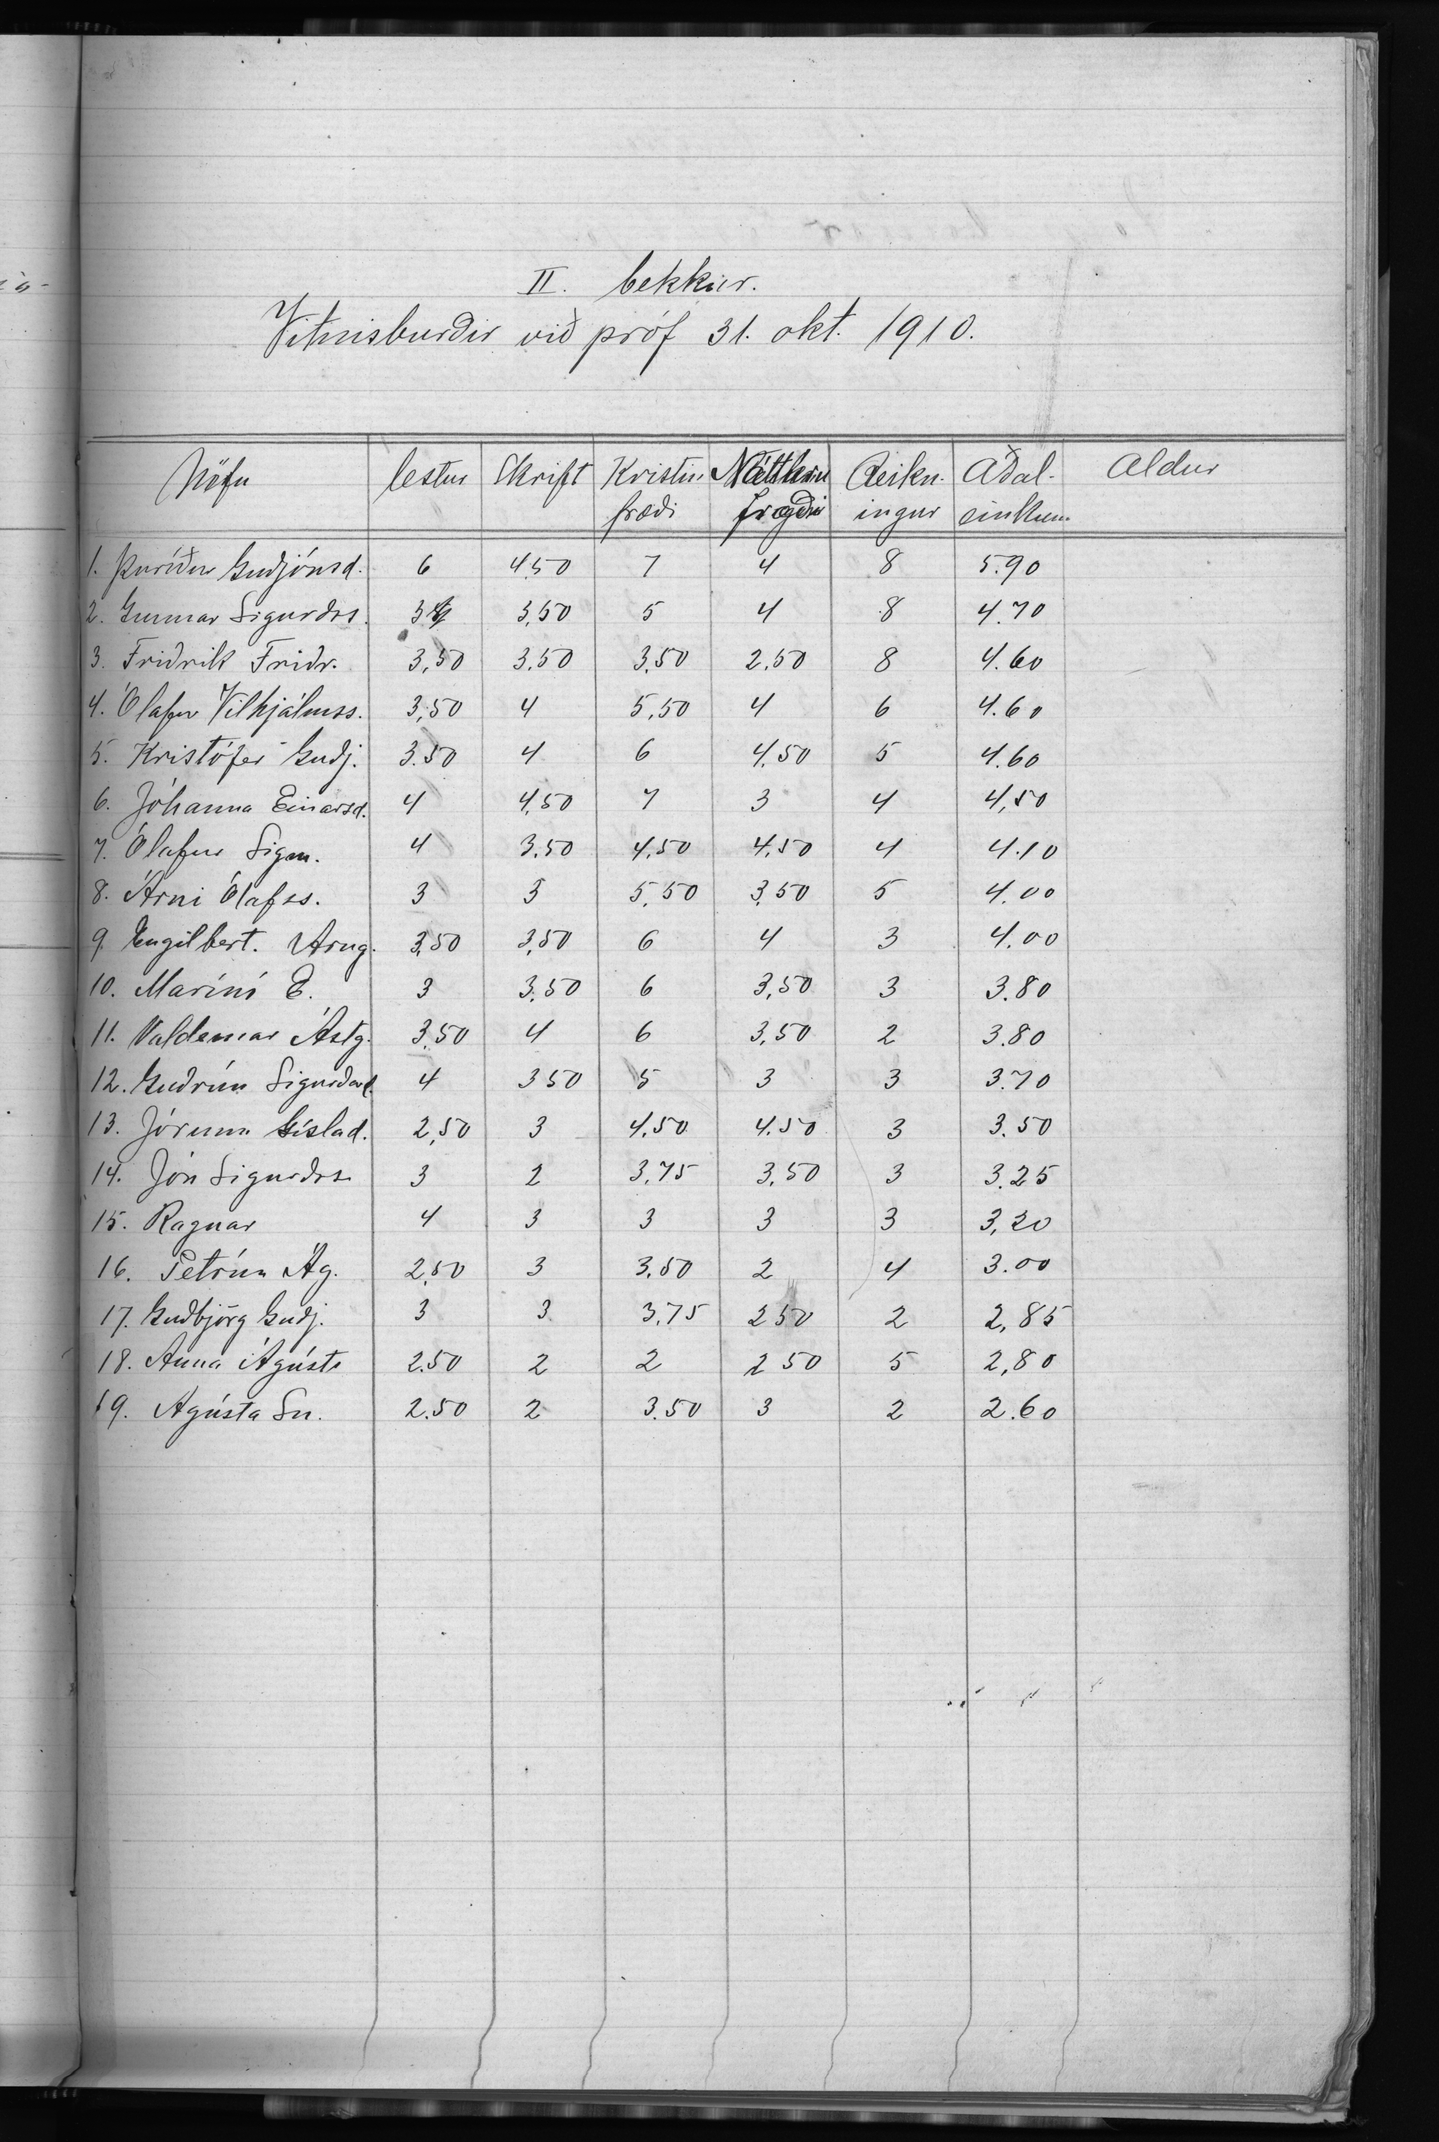 II. bekkur.
Vitnisburðir við próf 31. okt. 1910.
Nöfn lestur Skrift Kristin Reikn- Aðal- Aldur
fræði ingur einkunn
1. Þuríður Guðjónsd. 6 4,50 7 4 8 5.90
2. Gunnar Sigurðss. 3 3,50 5 4 8 4.70
3. Friðrik Friðr. 3,50 3.50 3,50 2,50 8 4.60
4. Ólafur Vilhjálmss. 3,50 4 5,50 4 6 4.60
5. Kristófer Guðj. 3.50 4 6 4.50 5 4.60
6. Jóhanna Einarsd. 4 4,50 7 3 4 4,50
7. Ólafur Sigm. 4 3.50 4,50 4.50 4 4.10
8. Árni Ólafss. 3 3 5,50 3,50 5 4.00
9 Engilbert. Arng. 3,50 3,50 6 4 3 4.00
10. Marínó E. 3 3,50 6 3,50 3 3.80
11. Valdemar Ástg. 3,50 4 6 3,50 2 3.80
12. Guðrún Sigurðard. 4 3 50 5 3 3 3.70
13. Jórunn Gíslad. 2,50 3 4,50 4.50 3 3.50
14. Jón Sigurðss 3 2 3,75 3,50 3 3.25
15. Ragnar 4 3 3 3 3 3,20
16. Petrún Ág. 2,50 3 3,50 2 4 3.00
17. Guðbjörg Guðj. 3 3 3,75 2 50 2 2,85
18. Anna Ágústs 2.50 2 2 2 50 5 2,80
19. Agústa Sn. 2.50 2 3.50 3 2 2.60